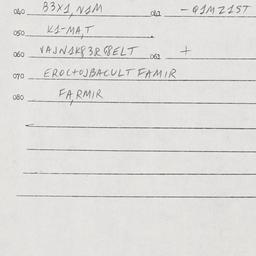 040 33X1,N1M 041 -91MZ15T
050 K1-MA,T
060 VAJN1K83R98ELT 061 +
070 EROC+OJBACULT FAMIR
080 FA,RMIR